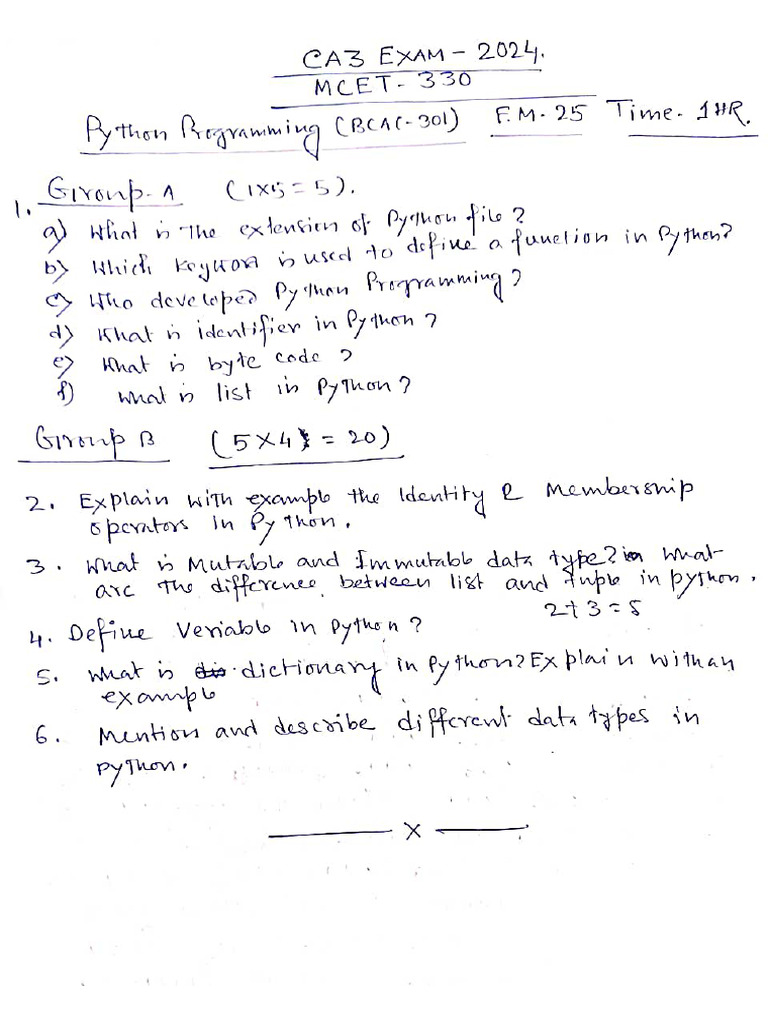 CA3 EXAM - 2024.
MCET - 330
Python Programming (BCAC-301) F.M. 25 Time. 1HR.
1. Group-A (1x5 = 5).
a) What is the extension of Python file?
b) Which keyword is used to define a function in Python?
c) Who developed Python Programming?
d) What is identifier in Python?
e) What is byte code?
f) What is list in Python?
Group B (5x4 = 20)
2. Explain with example the Identity & Membership
operators in Python.
3. What is Mutable and Immutable data type? What
are the difference between list and tuple in python.
2+3=5
4. Define Veriable in Python?
5. What is dictionary in Python? Explain with an
example
6. Mention and describe different data types in
python.
X